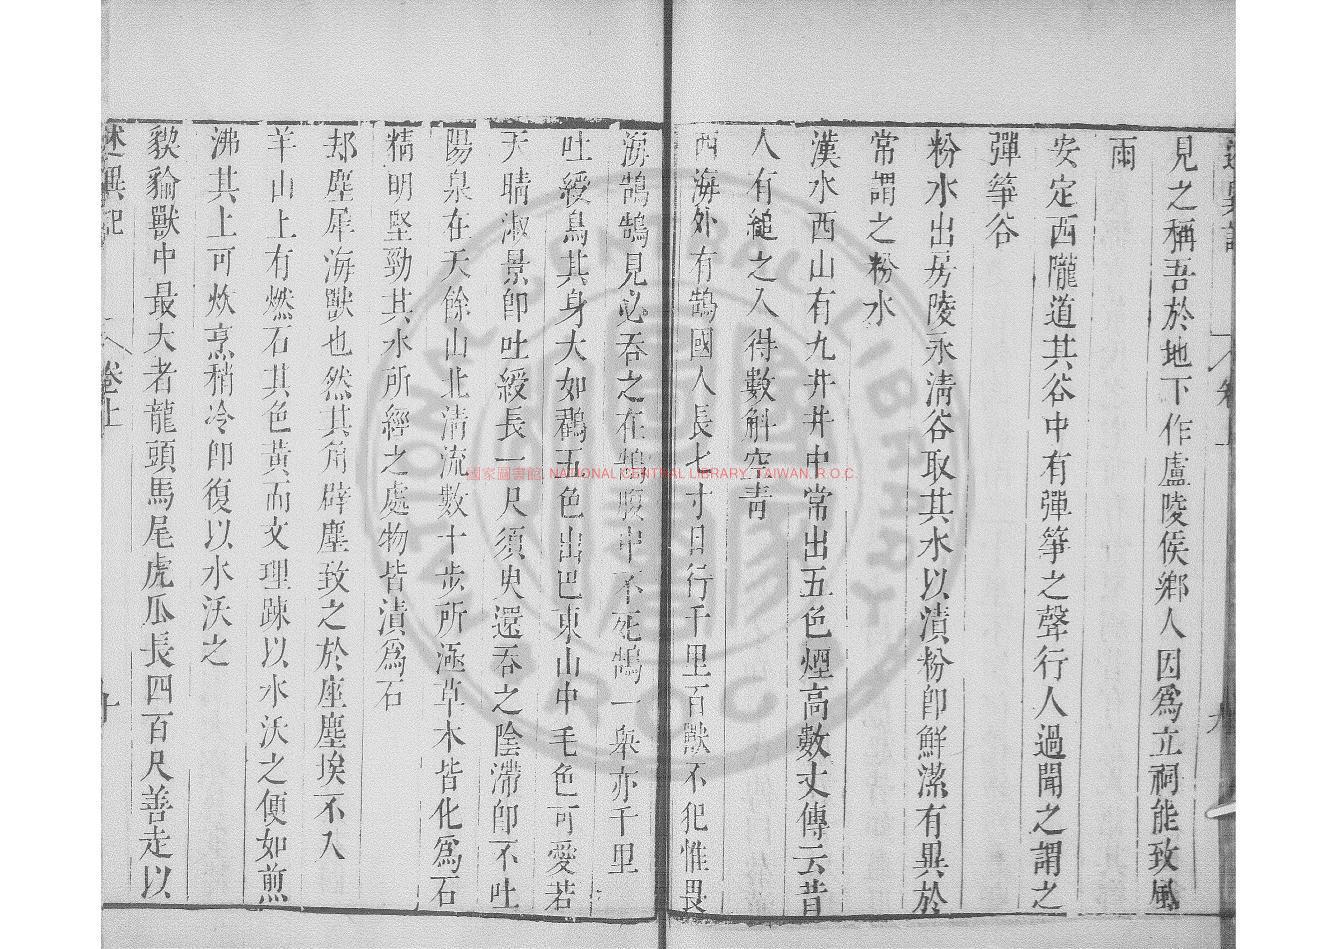 見之稱吾於地下作盧陵侯鄉人因爲立祠能致風
雨
安定西隴道其谷中有彈箏之聲行人過聞之謂之
彈箏谷
粉水出房陵永清谷取其水以漬粉卽鮮潔有異於
常謂之粉水
漢水西山有九井井中常出五色煙高數丈傳云昔
人有縋之入得數斛空青
西海外有鵠國人長七寸日行千里百獸不犯惟畏
海鵠鵠見必吞之在鵠腹中不死鵠一舉亦千里
吐綬鳥其身大如鸛五色出巴東山中毛色可愛若
天晴淑景卽吐綬長一尺須臾還吞之陰滯卽不吐
陽泉在天餘山北清流數十步所涵草木皆化爲石
精明堅勁其水所經之處物皆漬爲石
却塵犀海獸也然其角辟塵致之於座塵埃不入
羊山上有燃石其色黃而文理踈以水沃之便如煎
沸其上可炊烹稍冷卽復以水沃之
貏貐獸中最大者龍頭馬尾虎爪長四百尺善走以
述異記 卷上 十
國家圖書館, NATIONAL CENTRAL LIBRARY, TAIWAN, R.O.C.